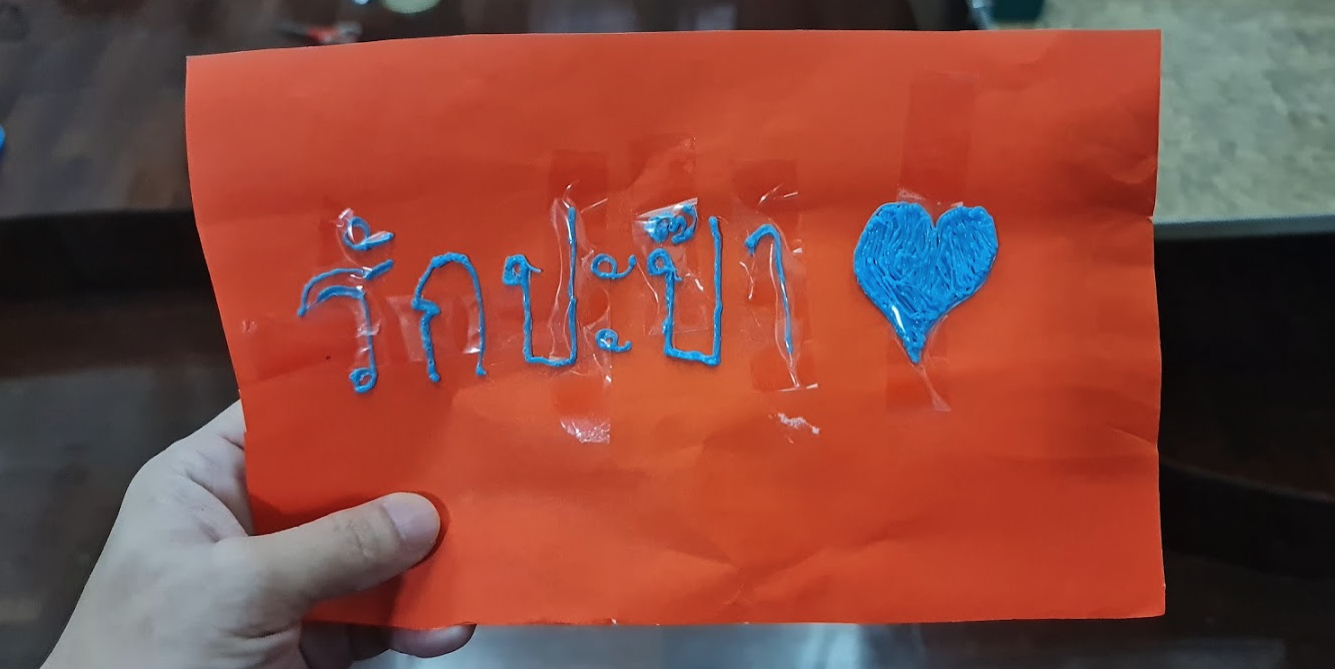 รักปะป๊า